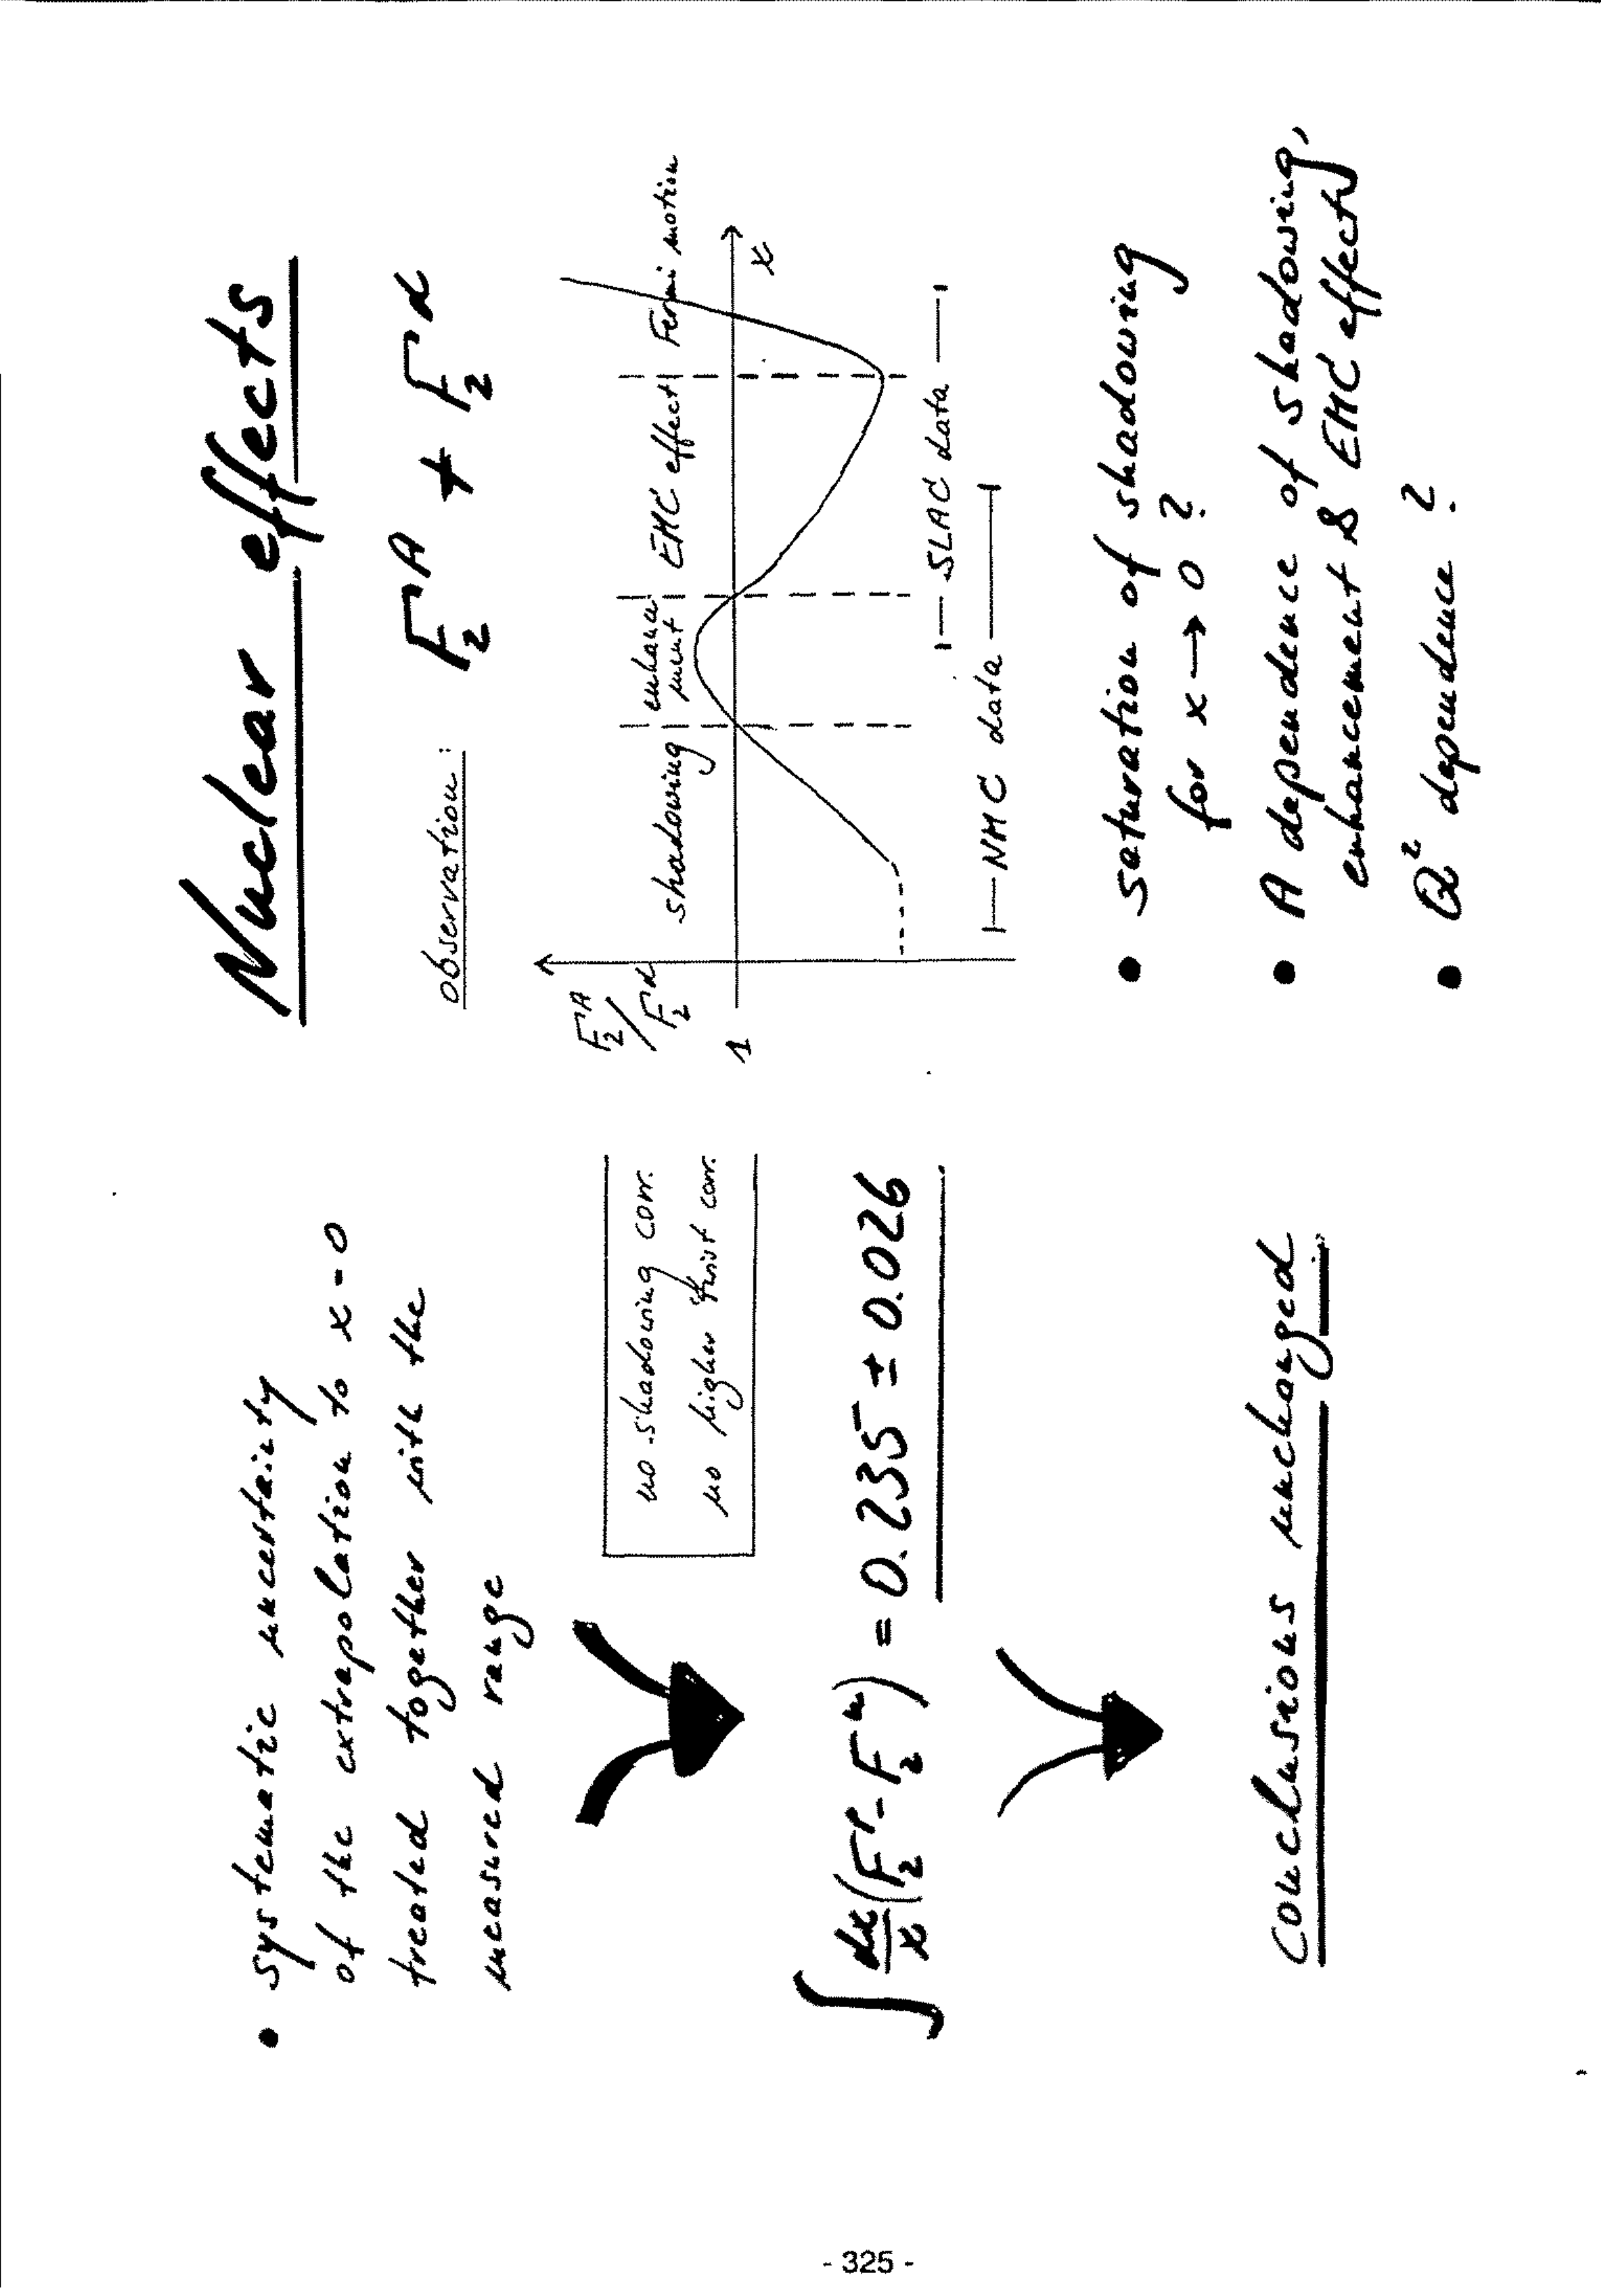 • systematic uncertainty
of the extrapolation to x=0
treated together with the
measured range
no shadowing corr.
no higher twist corr.
∫ dx/x (F₂ᵖ - F₂ⁿ) = 0.235 ± 0.026
Conclusions unchanged
Nuclear effects
observation:
F₂ᴬ ≠ F₂ᵈ
F₂ᴬ/F₂ᵈ
shadowing
enhance
ment
EMC effect
Fermi motion
1
x
SLAC data
NMC data
• saturation of shadowing
for x → 0 ?
• A dependence of shadowing,
enhancement & EMC effect ?
• Q² dependence ?
- 325 -